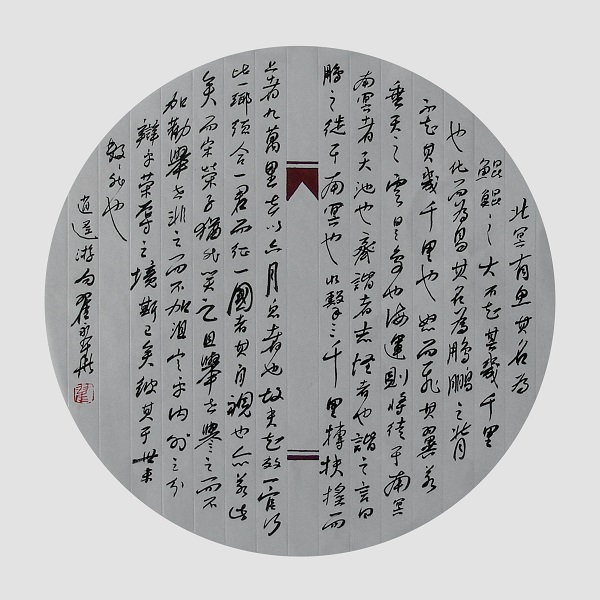 北冥有魚其名為
鯤鯤之大不知其幾千里
也化而為鳥其名為鵬鵬之背
不知其幾千里也怒而飛其翼若
垂天之雲是鳥也海運則將徙于南冥
南冥者天池也齊諧者志怪者也諧之言曰
鵬之徙于南冥也水擊三千里摶扶搖而
上者九萬里去以六月息者也故夫知效一官行
比一鄉德合一君而征一國者其自視也亦若此
矣而宋榮子猶然笑之且舉世譽之而不
加勸舉世非之而不加沮定乎內外之分
辯乎榮辱之境斯已矣彼其于世未
數〻然也
逍遙游句翟